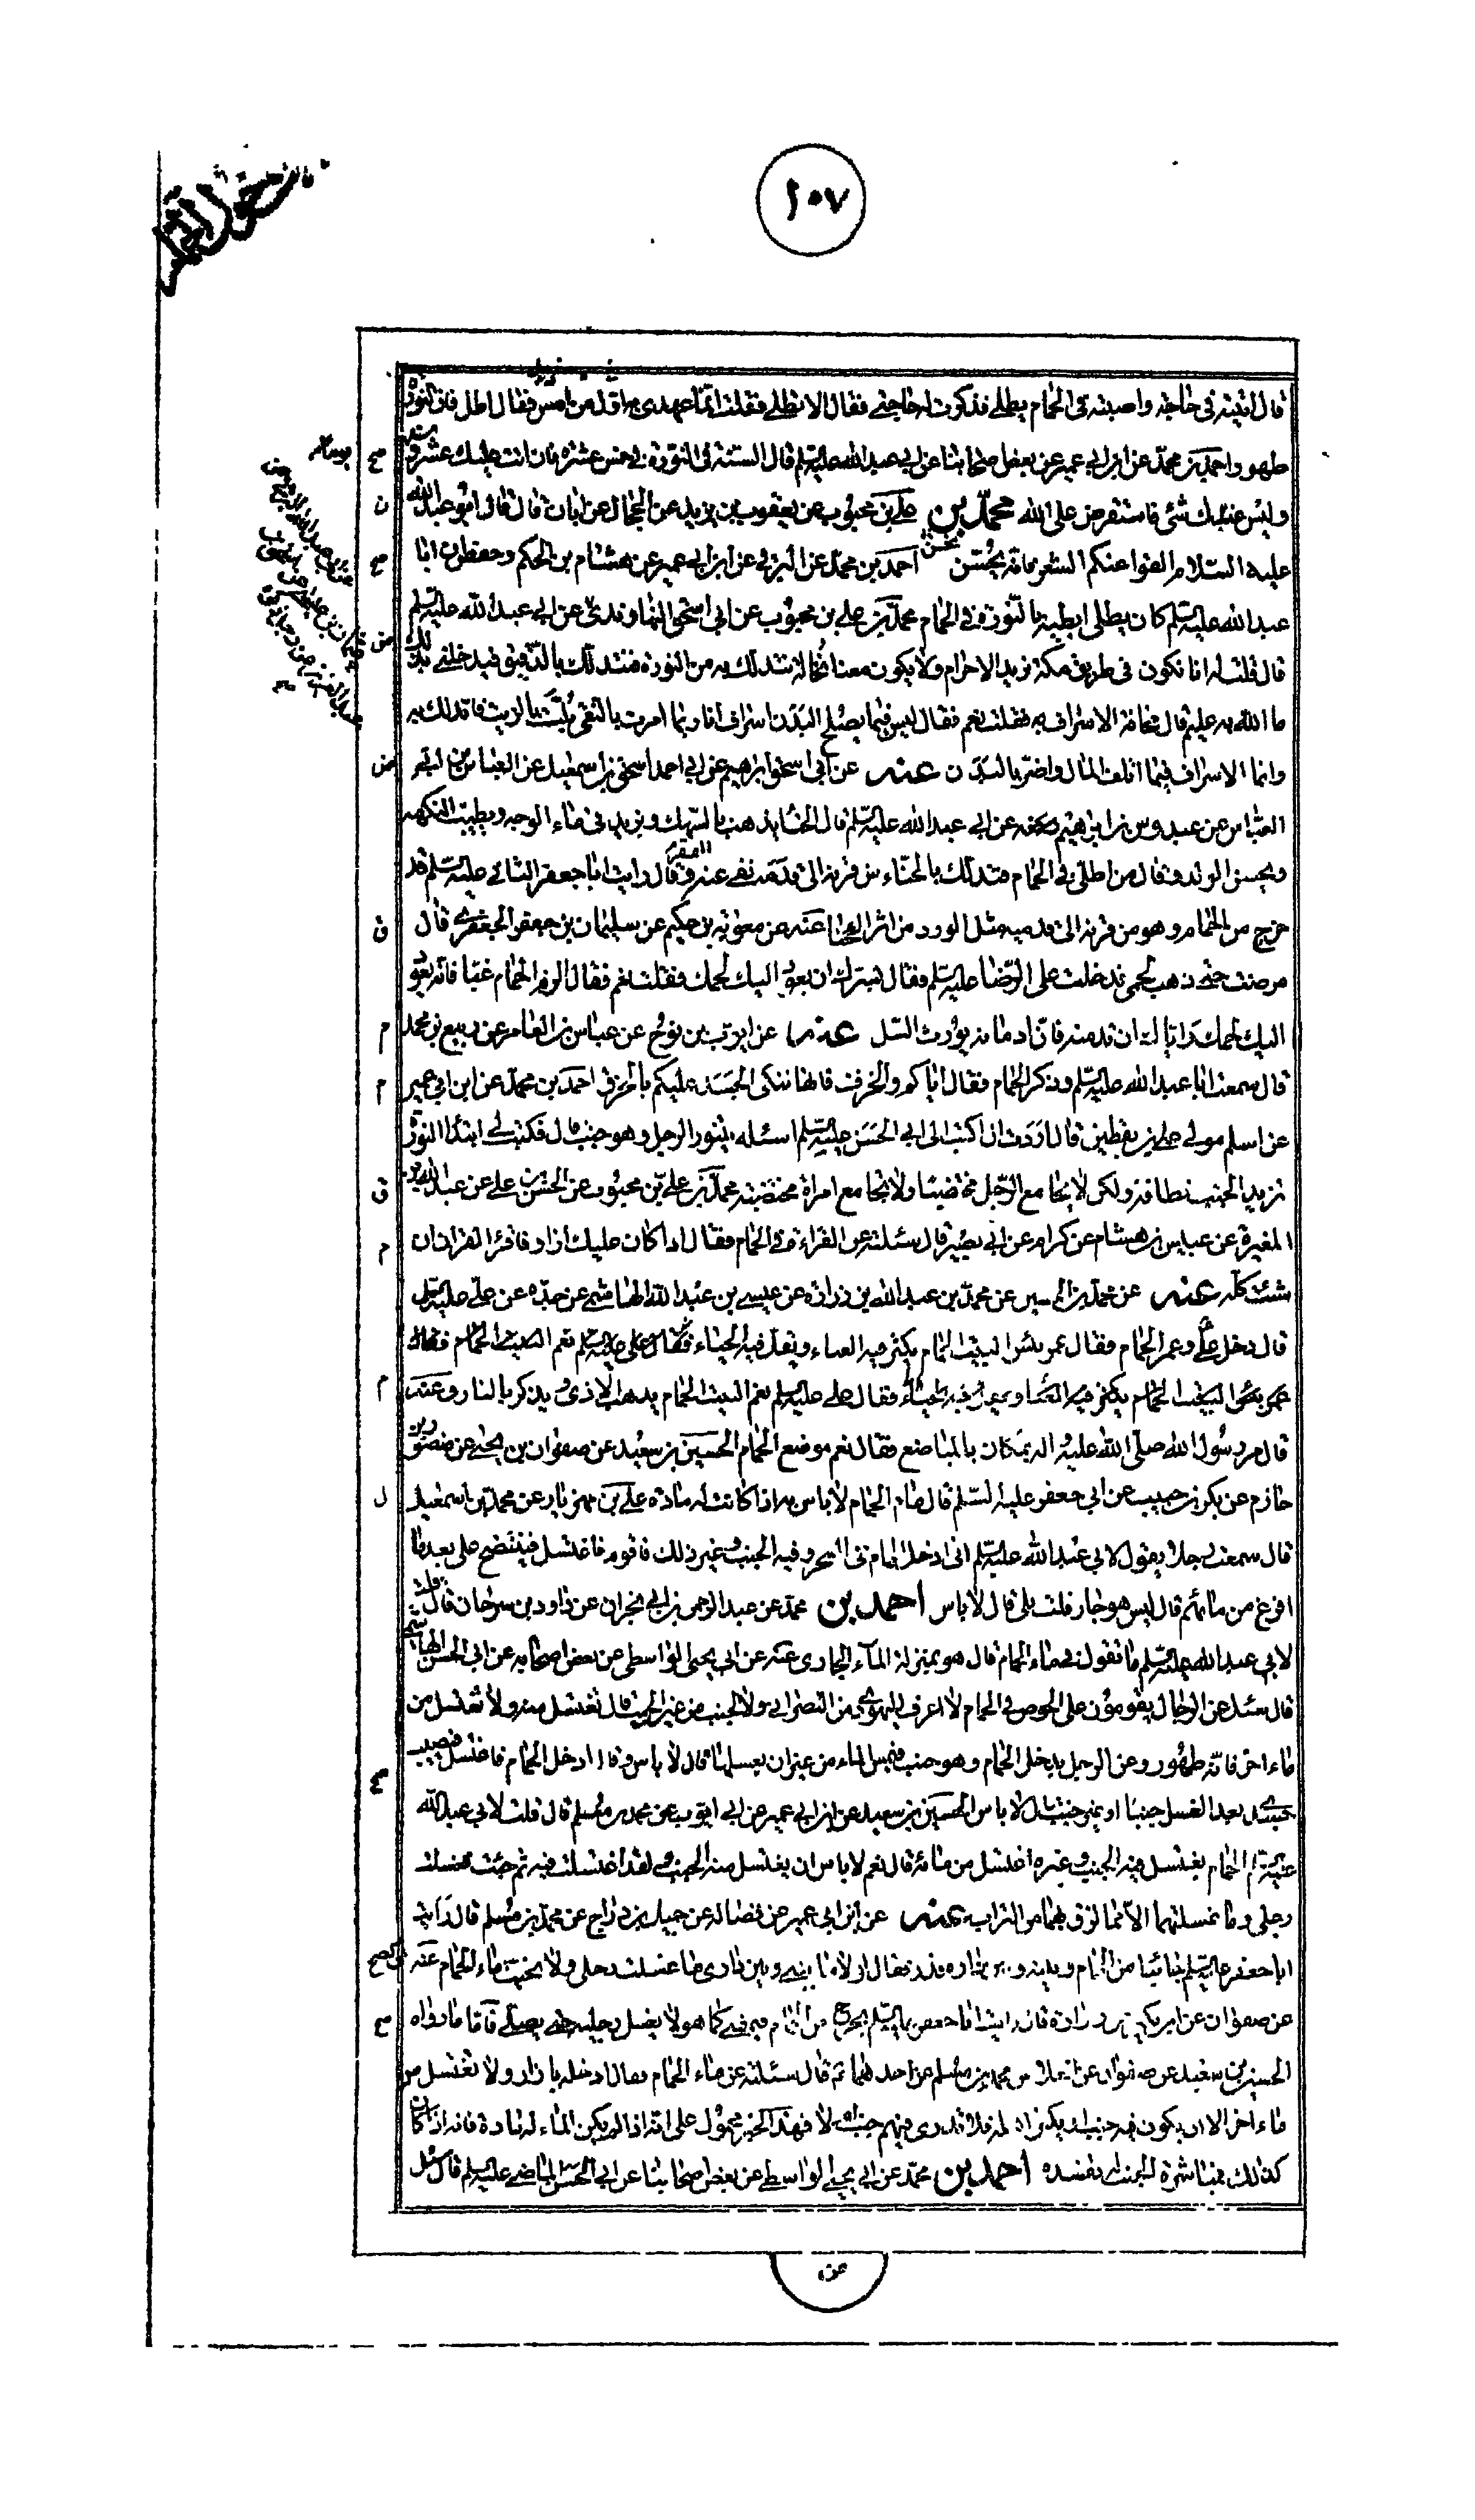 ١٠٧
قال اتيته في حاجة واصبته في الحمام يطلي فذكرت له حاجتي فقال الا تطلي فقلت انما عهدي به اول من امس فقال اطل فان النورة
طهور واحمد بن محمد عن ابن ابي عمير عن بعض اصحابنا عن ابي عبد الله عليه السلم قال السنة في النورة في خمس عشرة فان اتت عليك عشرون
وليس عندك شئ فاستقرض على الله محمد بن علي بن محبوب عن يعقوب بن يزيد عن الحجال عن ابان قال قال ابو عبد الله
عليه السلام القوا عنكم الشعر فانه يحسن احمد بن محمد عن البرقي عن ابن ابي عمير عن هشام بن الحكم وحفص ان ابا
عبد الله عليه السلم كان يطلي ابطيه بالنورة في الحمام محمد بن علي بن محبوب عن ابي اسحق النهاوندي عن ابي عبد الله عليه السلم
قال قلت له انا نكون في طريق مكة نريد الاحرام ولا يكون معنا نخالة نتدلك به من النورة فنتدلك بالدقيق فيدخلني من ذلك
ما الله به عليم قال مخافة الاسراف به فقلت نعم فقال ليس فيما يصلح البدن اسراف انا ربما امرت بالنقي يلت بالزيت فاتدلك به
وانما الاسراف فيما اتلف المال واضر بالبدن عنه عن ابي اسحق ابراهيم عن ابي احمد اسحق بن اسمعيل عن العباس بن ابي
العباس عن عبدوس بن ابراهيم رفعه عن ابي عبد الله عليه السلم قال الحناء يذهب بالسهك ويزيد في ماء الوجه ويطيب النكهة
ويحسن الولد وقال من اطلى في الحمام فتدلك بالحناء من قرنه الى قدمه نفي عنه الفقر وقال رايت ابا جعفر الثاني عليه السلم قد
خرج من الحمام وهو من قرنه الى قدميه مثل الورد من اثر الحنا عنه عن معوية بن حكيم عن سليمان بن جعفر الجعفري قال
مرضت حتى ذهب لحمي فدخلت على الرضا عليه السلم فقال ايسرك ان يعود اليك لحمك فقلت نعم فقال الزم الحمام غبا فانه يعود
اليك لحمك واياك ان تدمنه فان ادمانه يورث السل عنه عن ايوب بن نوح عن عباس بن العامر عن ربيع بن محمد
قال سمعت ابا عبد الله عليه السلم وذكر الحمام فقال اياكم والخزف فانها تنكى الجسد عليكم بالخرق احمد بن محمد عن ابن ابي عمير
عن اسلم مولى علي بن يقطين قال اردت ان اكتب الى ابي الحسن عليه السلم اسئله يتنور الرجل وهو جنب قال فكتب لي ابتدا النورة
تزيد الجنب نظافة ولكن لا يجامع الرجل مختضبا ولا يجامع امراة مختضبة محمد بن علي بن محبوب عن الحسن بن علي عن عبد الله بن
المغيرة عن عباس بن هشام عن كرام عن ابي بصير قال سئلته عن القراءة في الحمام فقال اذا كان عليك ازار فاقرا القران ان
شئت كله عنه عن محمد بن الحسين عن محمد بن عبد الله بن زرارة عن عيسى بن عبد الله الهاشمي عن جده عن علي عليه السلم
قال دخل علي وعمر الحمام فقال عمر بئس البيت الحمام يكثر فيه العناء ويقل فيه الحياء فقال علي عليه السلم نعم البيت الحمام
فقال علي عليه السلم نعم البيت الحمام يذهب الاذى ويذكر بالنار وعنه
قال مر رسول الله صلى الله عليه واله بمكان بالمباضع فقال نعم موضع الحمام الحسين بن سعيد عن صفوان بن يحيى عن منصور بن
حازم عن بكر بن حبيب عن ابي جعفر عليه السلم قال ماء الحمام لا باس به اذا كانت له مادة علي بن مهزيار عن محمد بن اسمعيل
قال سمعت رجلا يقول لابي عبد الله عليه السلم اني ادخل الحمام في السحر وفيه الجنب وغير ذلك فاقوم فاغتسل فينتضح علي بعد ما
افرغ من مائهم قال اليس هو جار قلت بلى قال لا باس احمد بن محمد عن عبد الرحمن بن ابي نجران عن داود بن سرحان قال قلت
لابي عبد الله عليه السلم ما تقول في ماء الحمام قال هو بمنزلة الماء الجاري عنه عن ابي يحيى الواسطي عن بعض اصحابه عن ابي الحسن الهاشمي
قال سئل عن الرجال يقومون على الحوض في الحمام لا اعرف اليهودي من النصراني ولا الجنب من غير الجنب قال تغتسل منه ولا تغتسل من
ماء اخر فانه طهور وعن الرجل يدخل الحمام وهو جنب فيمس الماء من غير ان يغسلهما قال لا باس وقال ادخل الحمام فاغتسل فيصيب
جسدي بعد الغسل جنبا او غير جنب قال لا باس الحسين بن سعيد عن ابن ابي عمير عن ابي ايوب عن محمد بن مسلم قال قلت لابي عبد الله
عليه السلم الحمام يغتسل فيه الجنب وغيره اغتسل من مائه قال نعم لا باس ان يغتسل منه الجنب ولقد اغتسلت فيه ثم جئت فغسلت
رجلي وما غسلتهما الا مما لزق بهما من التراب عنه عن ابن ابي عمير عن فضالة عن جميل بن دراج عن محمد بن مسلم قال رايت
ابا جعفر عليه السلم جائيا من الحمام وبينه وبين داره قذر فقال لولا ما بيني وبين داري ما غسلت رجلي ولا يجنب ماء الحمام عنه
عن صفوان عن ابن بكير عن زرارة قال رايت ابا جعفر عليه السلم يخرج من الحمام فيمضي كما هو لا يغسل رجليه حتى يصلي فاما ما رواه
الحسين بن سعيد عن صفوان عن العلا عن محمد بن مسلم عن احدهما ع قال سئلته عن ماء الحمام فقال ادخله بازار ولا تغتسل من
ماء اخر الا ان يكون فيه جنب او يكثر اهله فلا تدري فيهم جنب ام لا فهذا الخبر محمول على انه اذا لم يكن الماء له مادة فانه اذا كان
كذلك فمباشرة الجنب يفسده احمد بن محمد عن ابي يحيى الواسطي عن بعض اصحابنا عن ابي الحسن الماضي عليه السلم قال سئل
عن